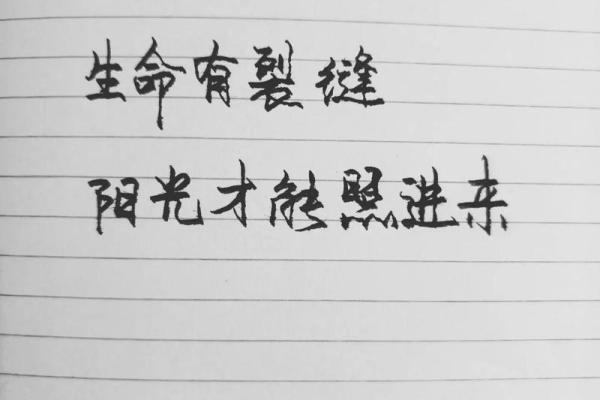 生命有裂缝
阳光才能照进来